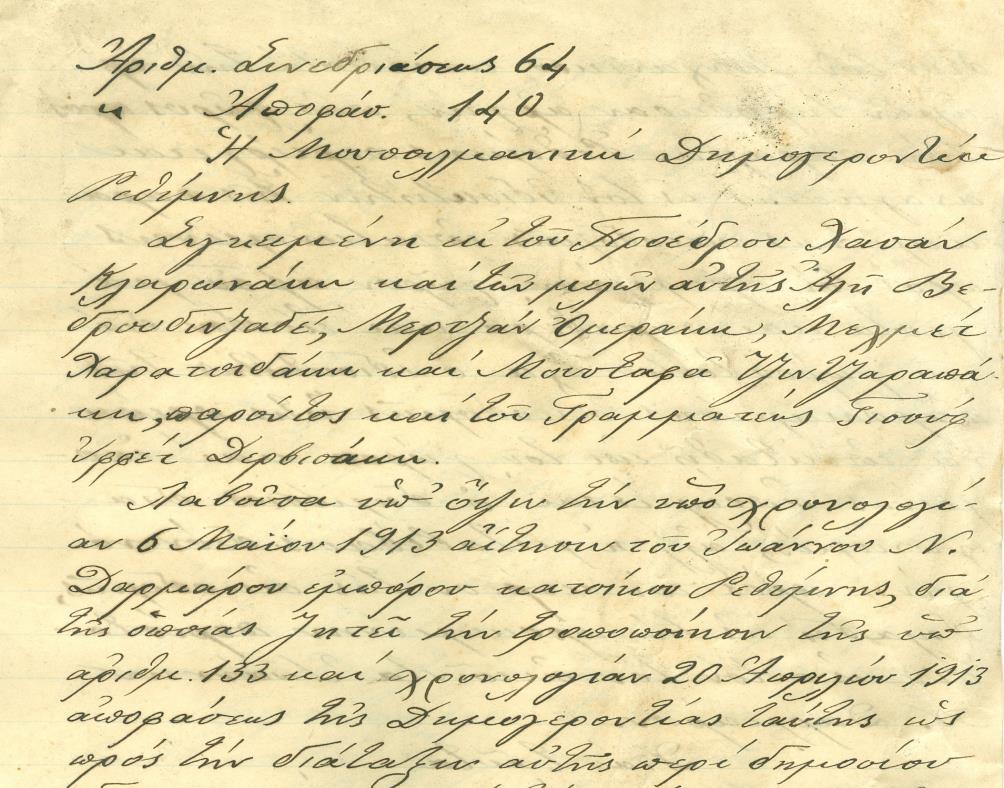 Ἀριθμ. Συνεδριάσεως 64
〃 Ἀποφάσ. 140
Ἡ Μουσουλμανική Δημογεροντία
Ρεθύμνης.
Συγκειμένη ἐκ τοῦ Προέδρου Χασάν
Κλαρωνάκη καί τῶν μελῶν αὐτῆς Ἀλῆ Βε-
δρουδινζαδέ, Μερτζάν Ὀμεράκη, Μεχμέτ
Χαρατσιδάκη καί Μουσταφᾶ Τζιντζαραπά-
κη, παρόντος καί τοῦ Γραμματέως Γιουσούφ
Δερβισάκη.
Λαβοῦσα ὑπ' ὄψιν τήν ὑπό χρονολογί-
αν 6 Μαΐου 1913 αἴτησιν τοῦ Ἰωάννου Ν.
Δαρμάρου ἐμπόρου κατοίκου Ρεθύμνης, διά
τῆς ὁποίας ζητεῖ τήν τροποποίησιν τῆς ὑπ'
ἀριθμ. 133 καί χρονολογίαν 20 Ἀπριλίου 1913
ἀποφάσεως τῆς Δημογεροντίας ταύτης ὡς
πρός τήν διάταξιν αὐτῆς περί δημοσίου